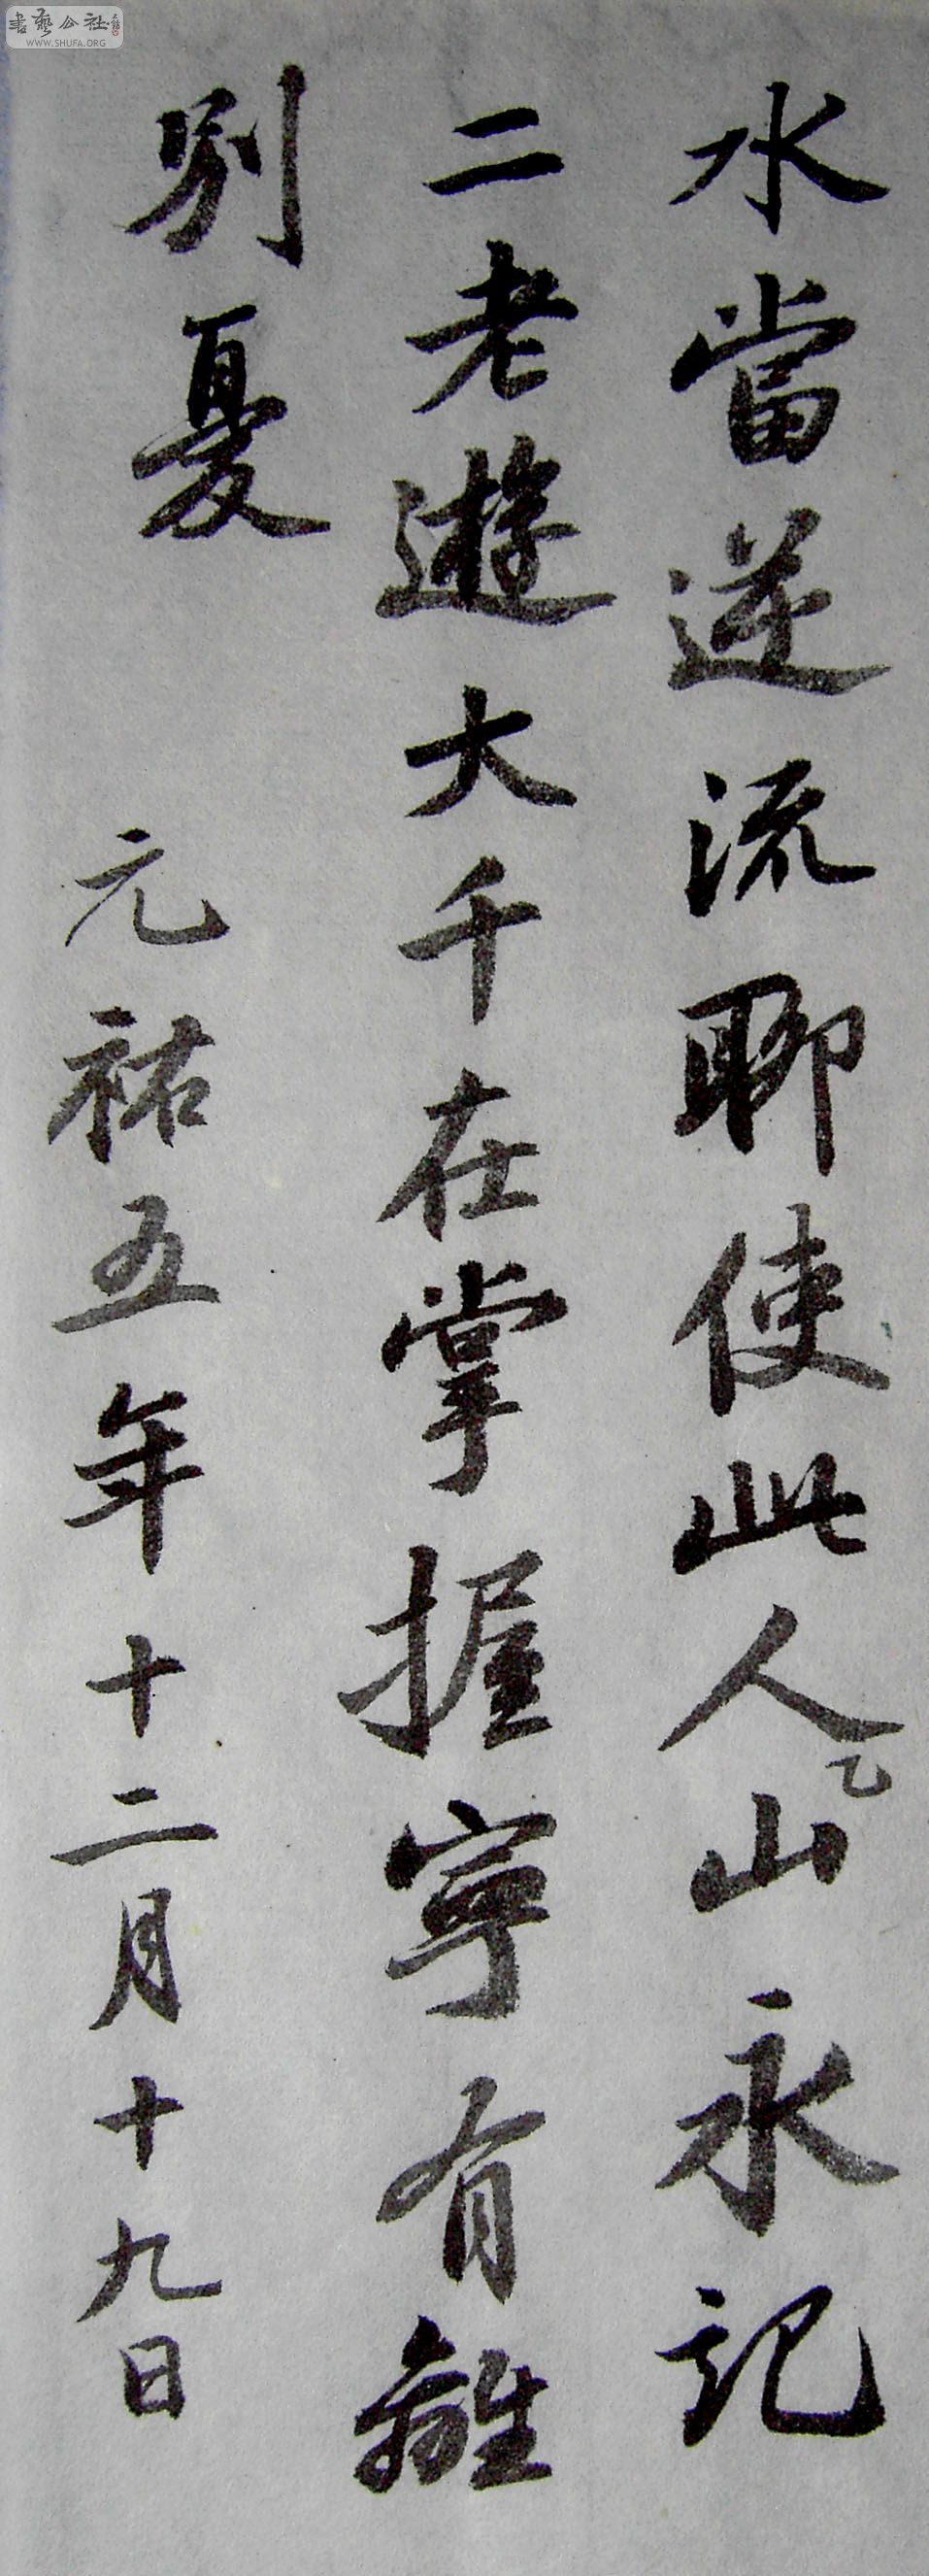 水當逆流聊使此人山永記
二老遊大千在掌握寧有離
別憂
元祐五年十二月十九日
書藝公社
WWW.SHUFA.ORG